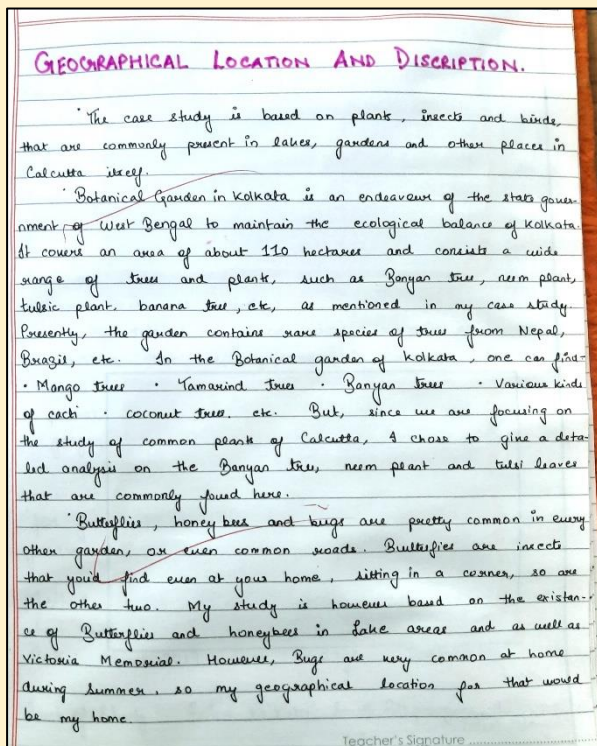 GEOGRAPHICAL LOCATION AND DISCRIPTION.
The case study is based on plants, insects and birds,
that are commonly present in lakes, gardens and other places in
Calcutta itself.
Botanical Garden in Kolkata is an endeavour of the state gover-
nment of West Bengal to maintain the ecological balance of Kolkata.
It covers an area of about 110 hectares and consists a wide
range of trees and plants, such as Banyan tree, neem plant,
tulsic plant, banana tree, etc, as mentioned in my case study.
Presently, the garden contains rare species of trees from Nepal,
Brazil, etc. In the Botanical garden of Kolkata, one can find-
· Mango trees · Tamarind trees · Banyan trees · Various kinds
of cacti · coconut trees, etc. But, since we are focusing on
the study of common plants of Calcutta, I chose to give a deta-
led analysis on the Banyan tree, neem plant and tulsi leaves
that are commonly found here.
Butterflies, honey bees and bugs are pretty common in every
other garden, or even common roads. Butterfies are insects
that you'd find even at your home, sitting in a corner, so are
the other two. My study is however based on the existan-
ce of Butterflies and honeybees in Lake areas and as well as
Victoria Memorial. However, Bugs are very common at home
during Summer, so my geographical location for that would
be my home.
Teacher's Signature ....................